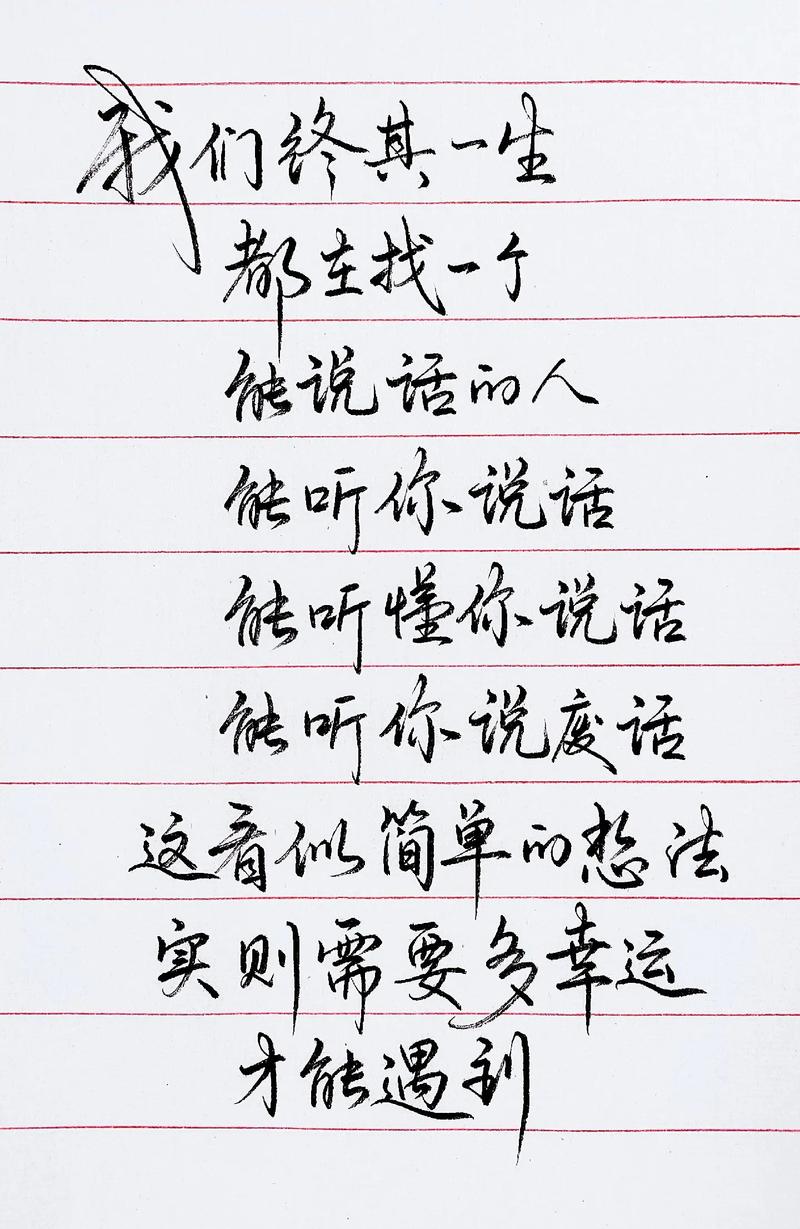 我们终其一生
都在找一个
能说话的人
能听你说话
能听懂你说话
能听你说废话
这看似简单的想法
实则需要多幸运
才能遇到